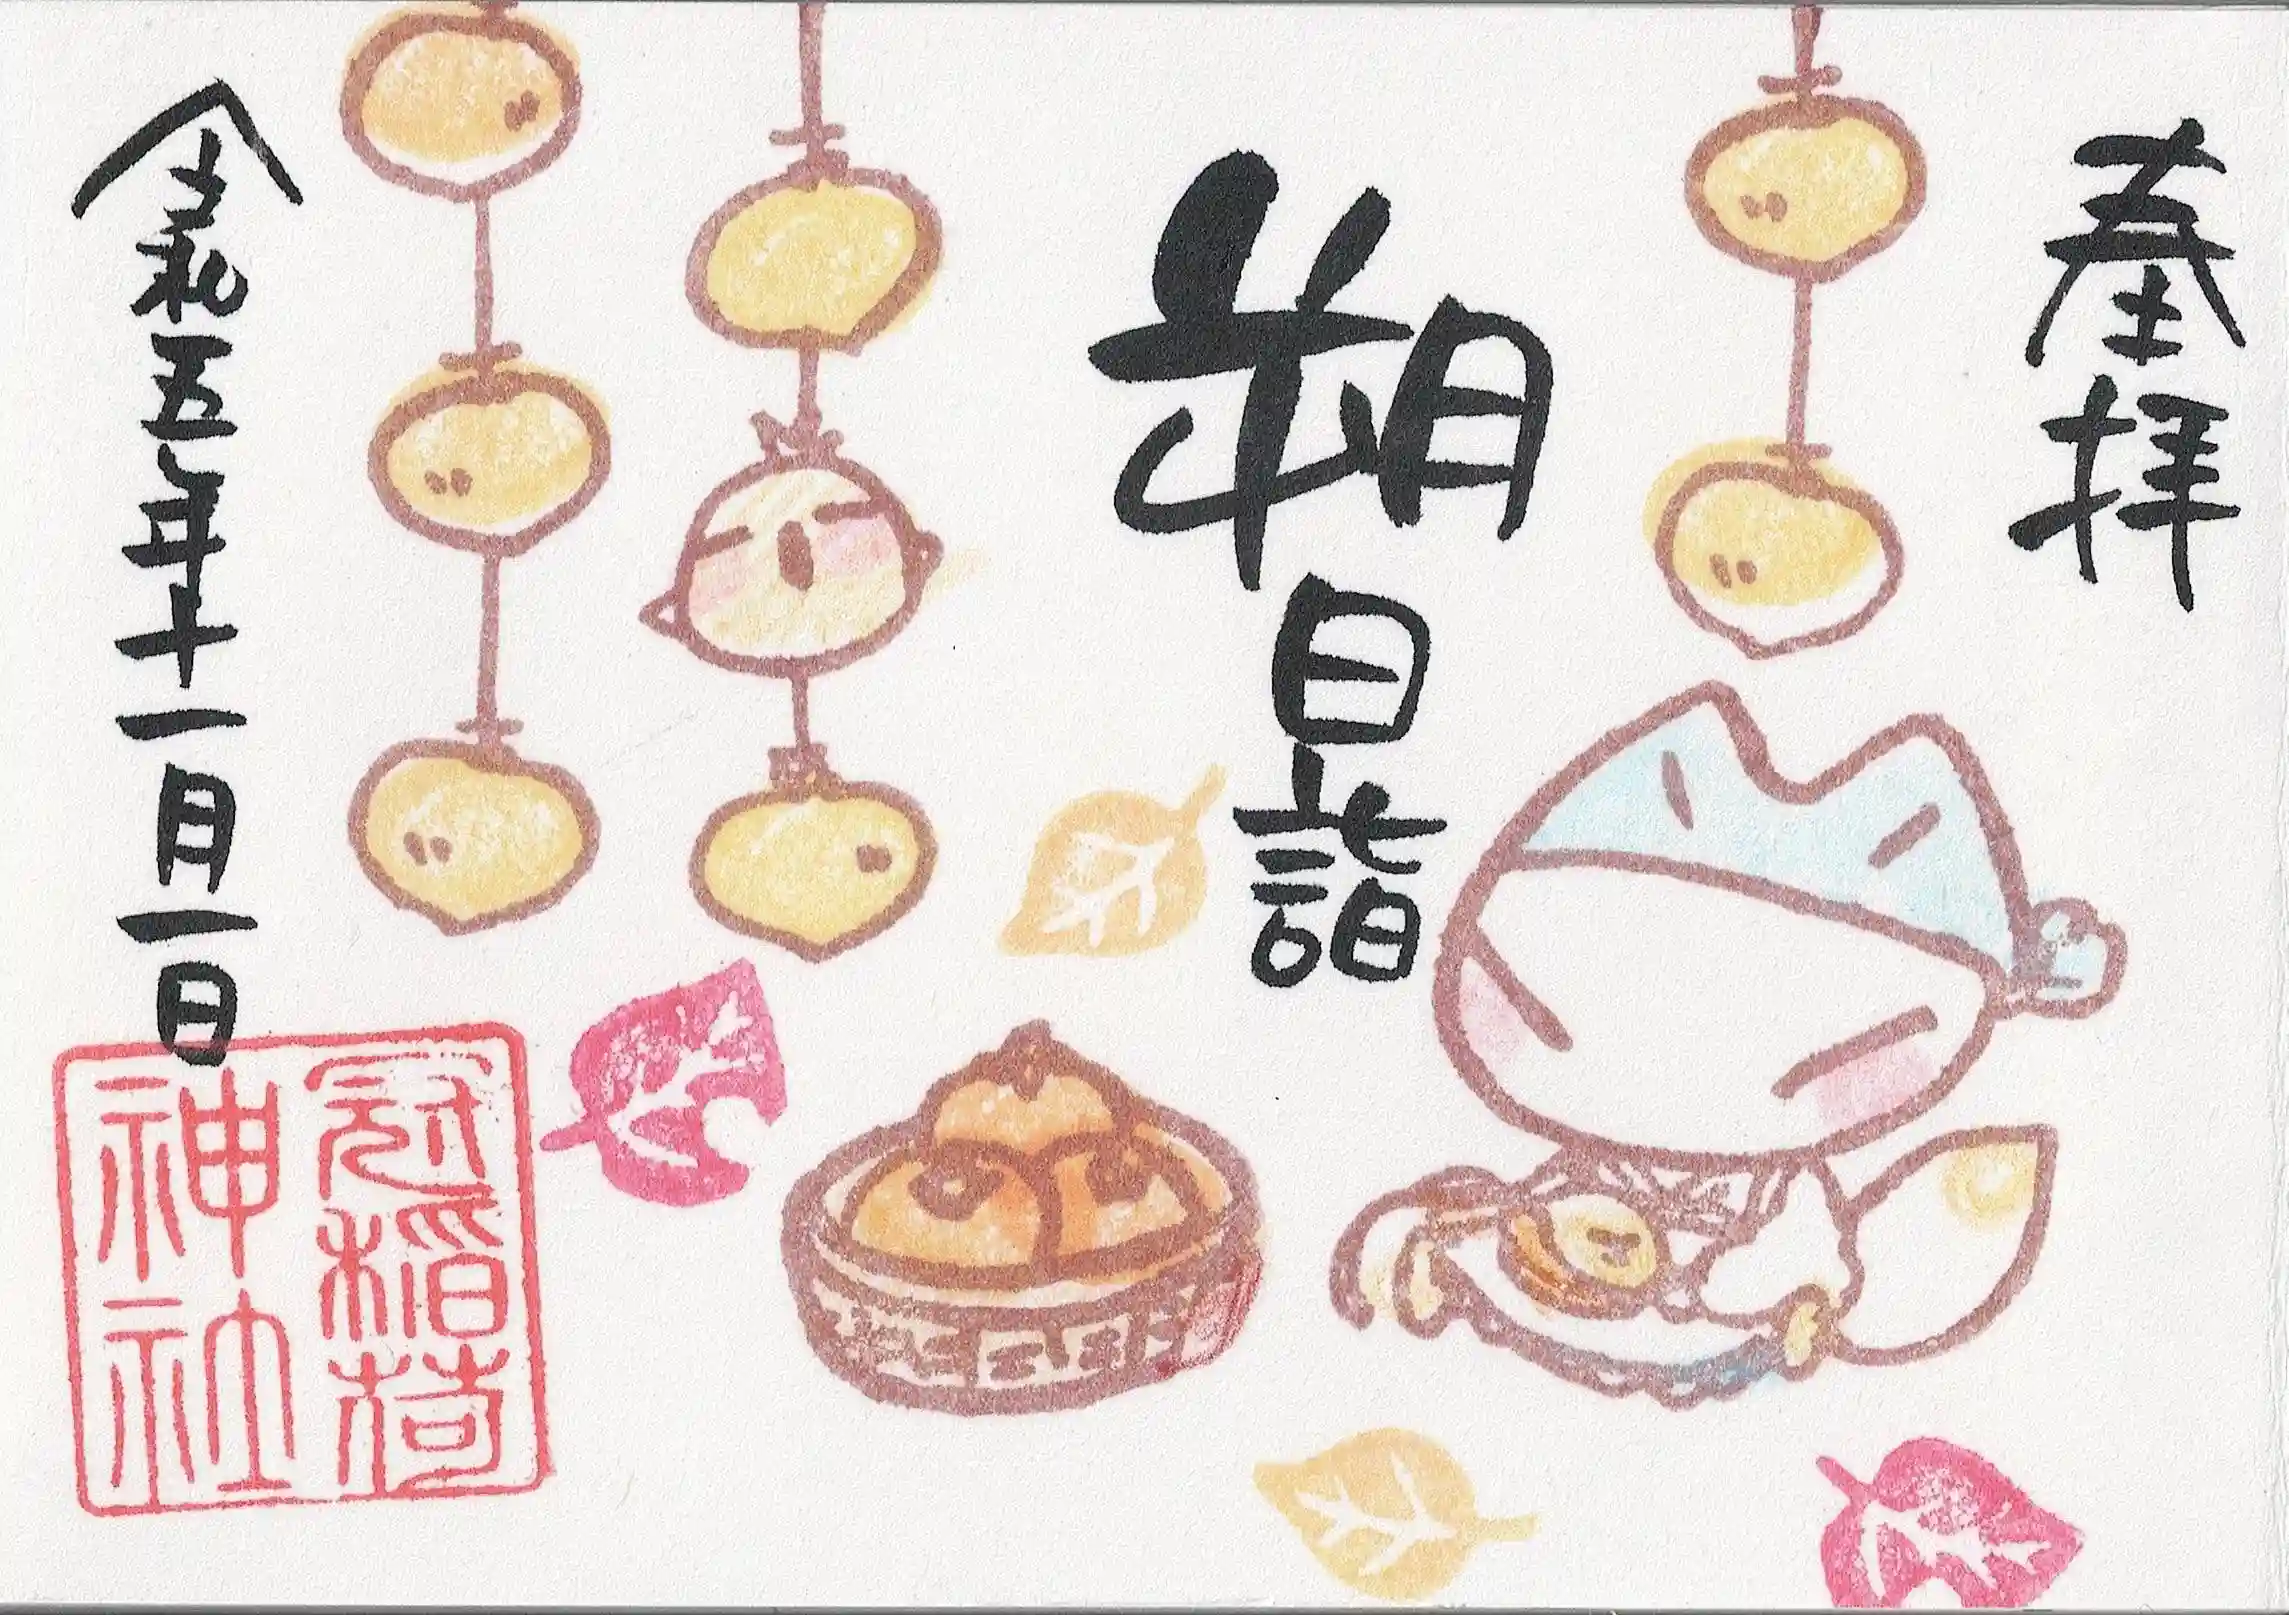 奉拝
朔日詣
令和五年十一月一日
冠稲荷
神社